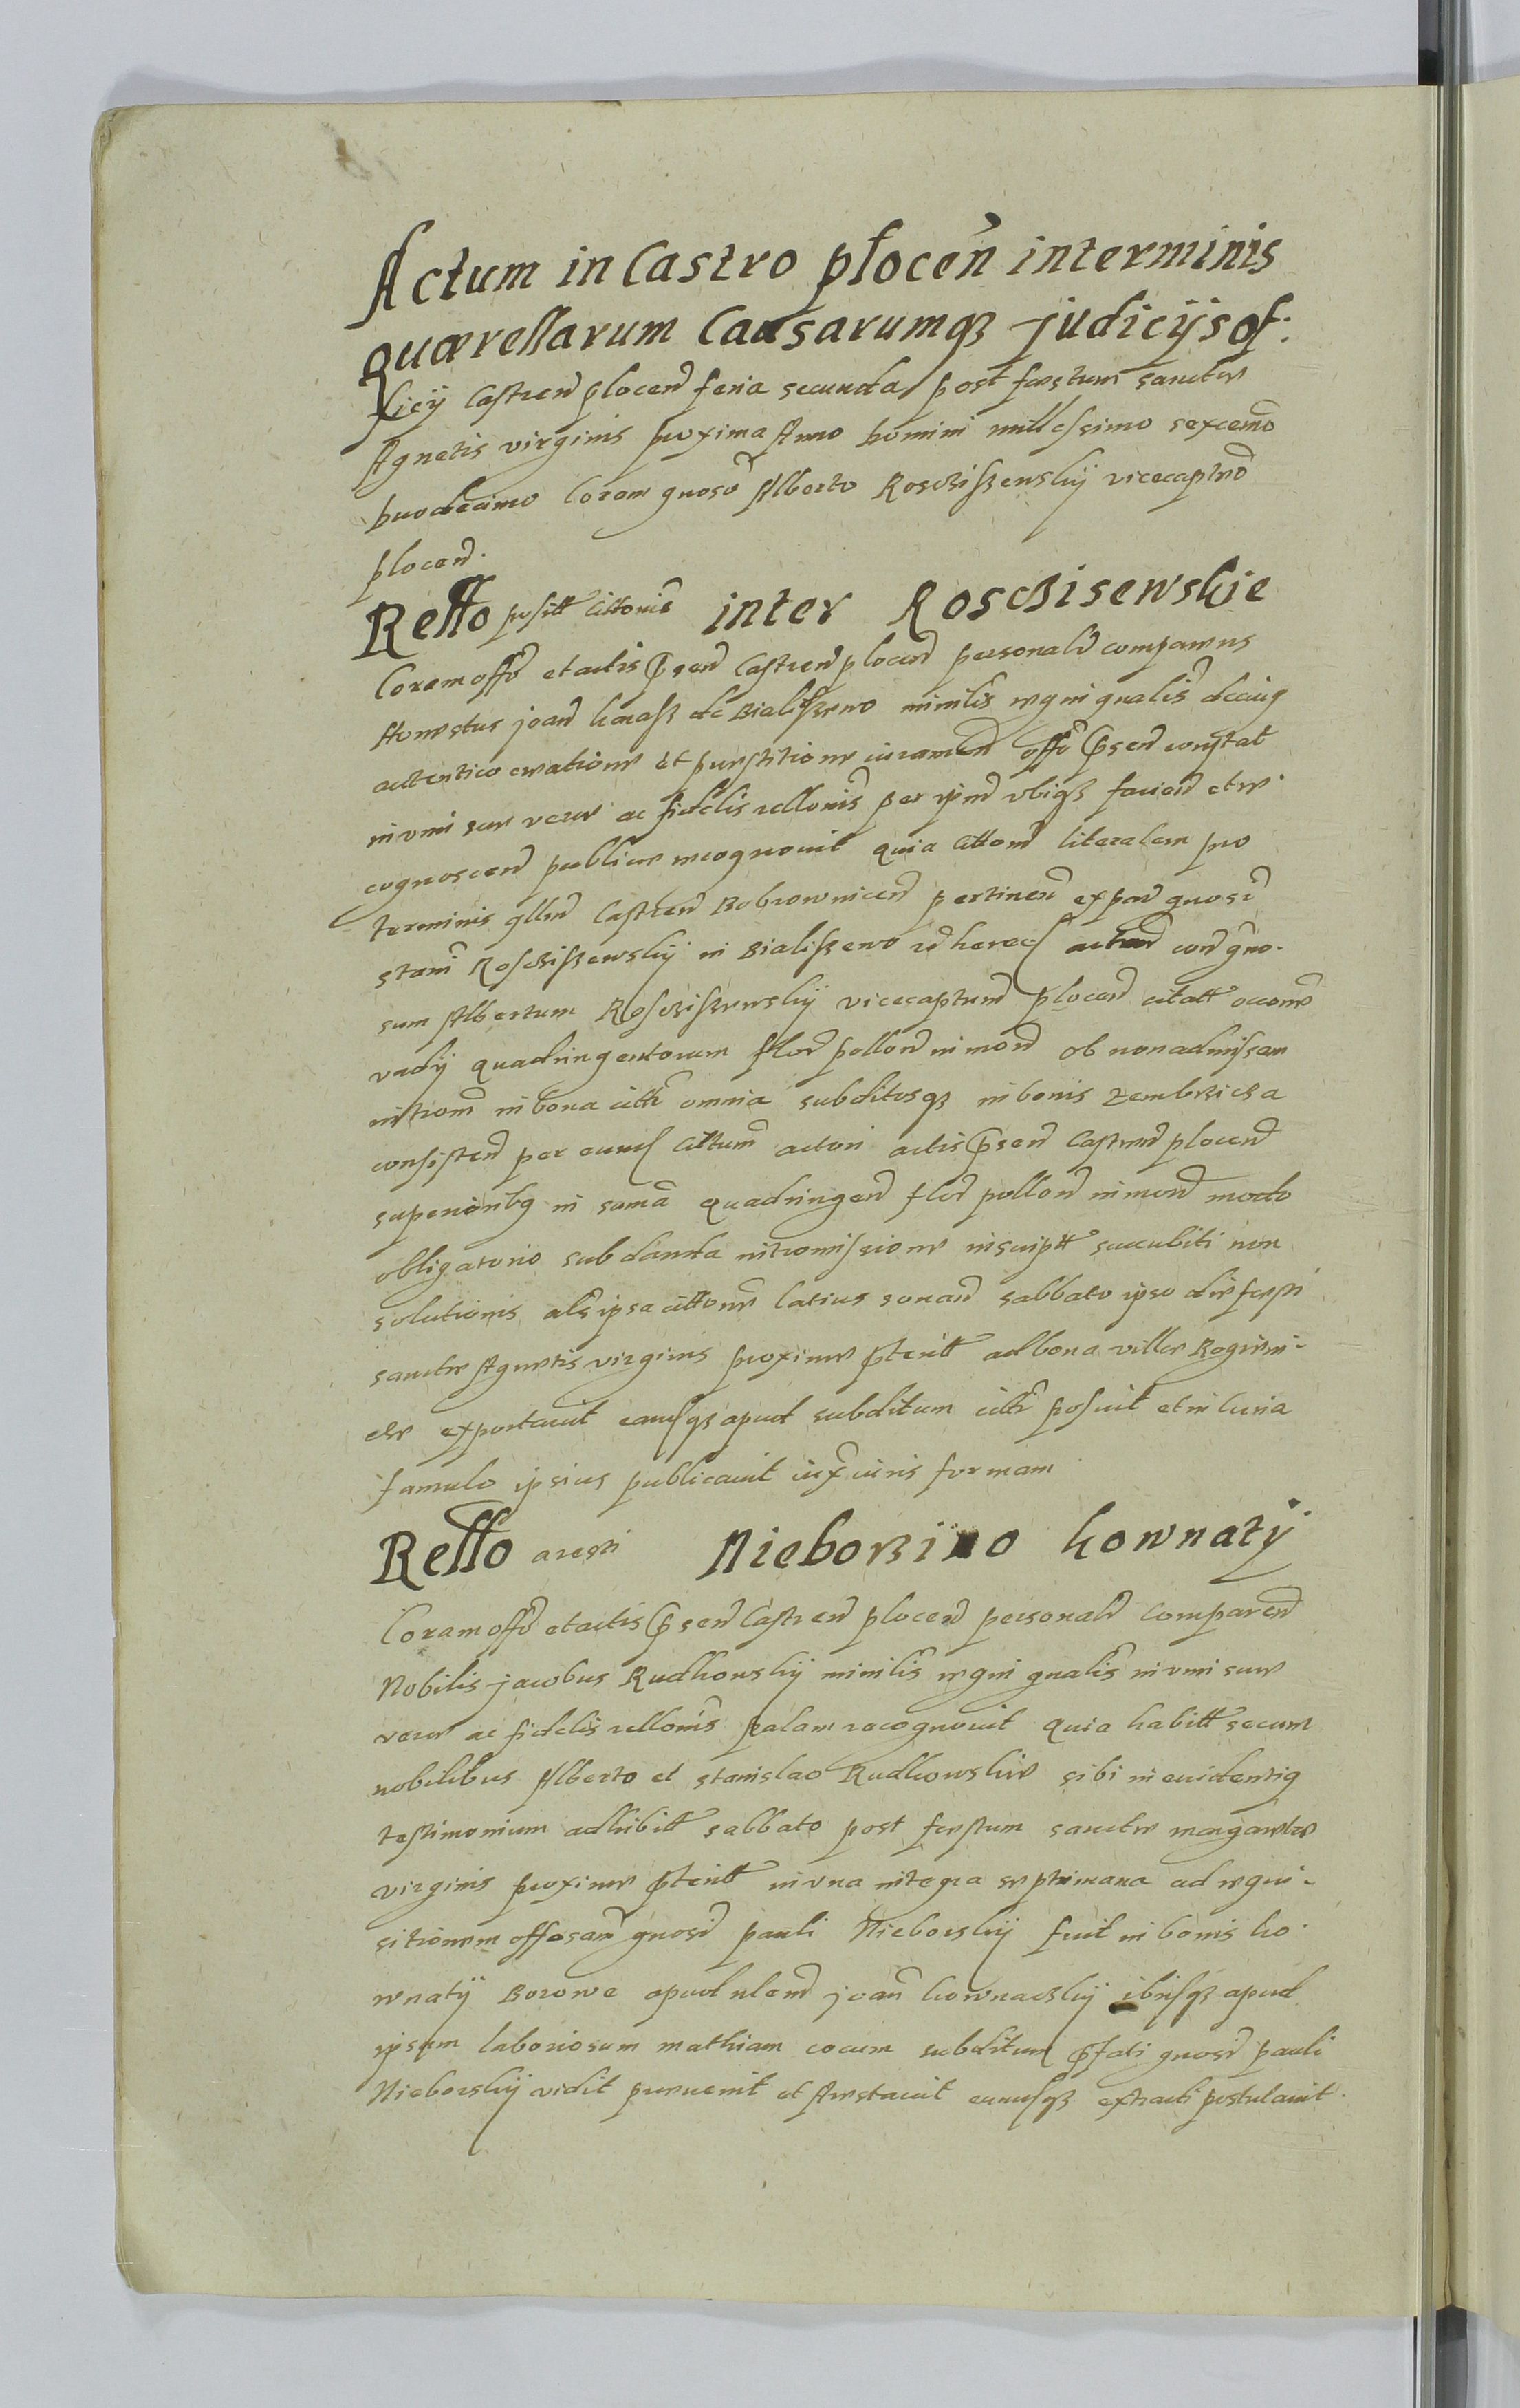 Actum in Castro plocen̄ interminis
quærellarum Causarumqз judicijs of.
ficij Castren plocen feria secunda post festum sanctæ
Agnetis virginis proxima Anno Domini millessimo sexcenō
Duodecimo Coram gnoso Alberto Rosczissewskij vicecaptnō
plocen.
Rello positt cittonis inter Rosczisewskie
Coram offo et actis pn̄sen Castren plocen personalr comparens
Honestus joan de Bialissewo minilis regni gnalis de cuius
autentico creatione et præstitione iuramen offo pn̄sen constat
in vim suæ veræ ac fidelis rellonis per ipm vbiqз facien et re.
cognoscen publice recognouit quia citton literalem pro
terminis qllm Castren Bobrownicen pertinen ex par gnosi
stani Rosczissewskij in Bialissewo hered con gno.
sum Albertum Rosczissewskij vicecaptum plocen citatt occone
vadij quadringentorum flor pollon in mon ob non admissam
introm in bona citti omnia subditosqз in bonis Zembrzicza
consisten per eund cittum actori actis pn̄sen Castren plocen
superioribg in sumā quadringen flor pollon in mon modo
obligatorio sub danda intromissione inscriptt succubiti non
solutionis als ipsa cittone latius sonan sabbato ipso die festi
sanctæ Agnetis virginis proxime pteritt ad bona villæ Rogieni.
exportauit eamqз apud subditum citti posuit et in curia
famulo ipsius publicauit iux iuris formam
Rello aresti Nieborzino kownatij
Coram offo et actis pn̄sen Castren plocen personalr comparen
Nobilis jacobus Rudkowskij minilis regni gnalis in vim suæ
veræ ac fidelis rellonis palam recognouit quia habitt secum
nobilibus Alberto et stanislao Rudkowskie sibi in euidentig
testimonium adhibitt sabbato post festum sanctæ margaretæ
virginis proxime pteritt in vna integra septimana ad requi.
sitionem offosam gnosi pauli Nieborskij fuit in bonis ko.
wnatij Borowe apud nlem joan kownaczkij ibiqз apud
ipsum laboriosum mathiam cocum subditum pfati gnosi pauli
Nieborskij vidit peruenit et Arestauit eumqз extradi postulauit.